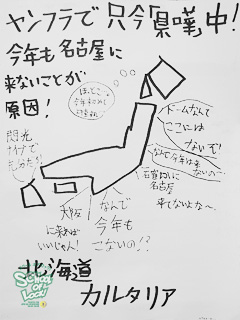 ヤンフラで只今県嘩中!
今年も名古屋に
来ないことが
原因!
ドームなんて
ここには
ないぞ!
なんで今年は来
ないの…
名古屋
来てしないよな〜
大阪
に来れば
いいじゃん!
なんで
今年も
こないの!?
北海道
カルタリア
SCHOOL OF LOCK!